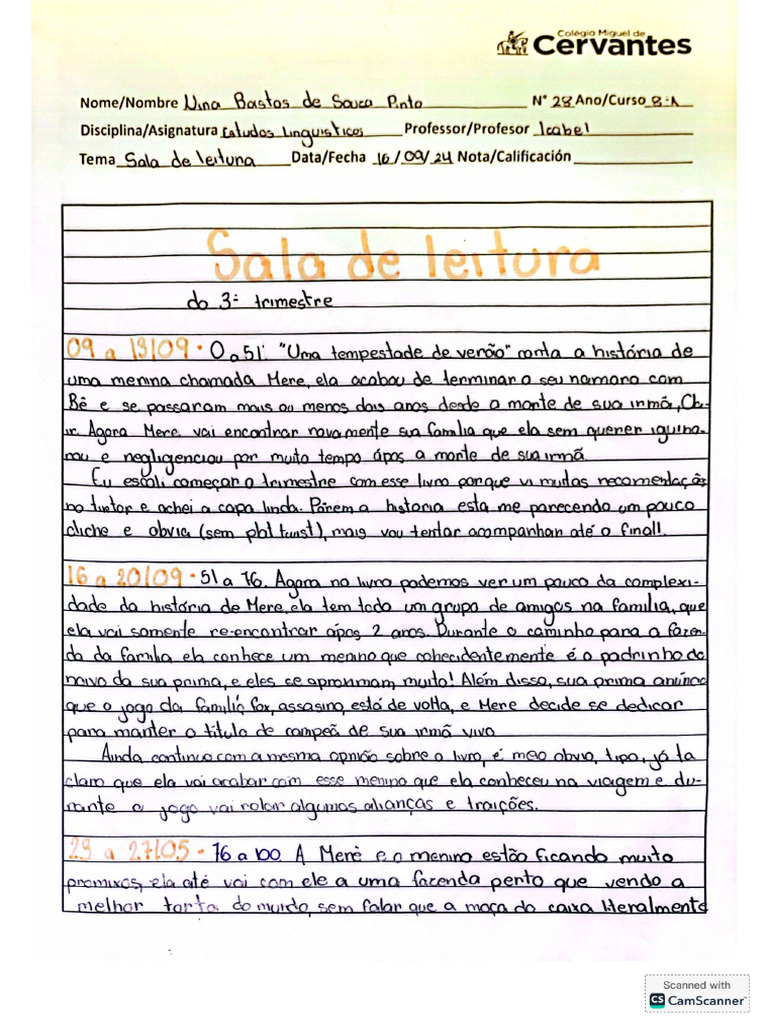 Colégio Miguel de
Cervantes
Nome/Nombre Nina Bastos de Souca Pinto N° 28 Ano/Curso 8·A
Disciplina/Asignatura Estudos Linguisticos Professor/Profesor Isabel
Tema Sala de leitura Data/Fecha 16/09/24 Nota/Calificación
Sala de leitura
do 3º trimestre
09 a 13/09 · 0 a 51: "Uma tempestade de verão" conta a história de
uma menina chamada Mere, ela acabou de terminar o seu namoro com
Bê e se passaram mais ou menos dois anos desde a morte de sua irmã, Cla-
ir. Agora Mere vai encontrar novamente sua família que ela sem querer iguino-
rou e negligenciou por muito tempo ápos a morte de sua irmã
Eu escoli começar o trimestre com esse livro porque vi muitas recomentação
no tiktor e achei a capa linda. Pórem a historia esta me parecendo um pouco
cliche e obvia (sem plot twist), mais vou tentar acompanhar até o final!
16 a 20/09 · 51 a 76. Agora no livro podemos ver um pouco da complexi-
dade da história de Mere, ela tem todo um grupo de amigos na família, que
ela vai somente re-encontrar ápos 2 anos. Durante o caminho para a fazen-
da da família ela conhece um menino que cohecidentemente é o padrinho do
noivo da sua prima, e eles se aproximam, muito! Além disso, sua prima anúncia
que o jogo da família fox, assasino, está de volta, e Mere decide se dedicar
para manter o titulo de campeã de sua irmã vivo
Ainda continuo com a mesma opnião sobre o livro, é meo obvio, tipo, já ta
claro que ela vai acabar com esse menino que ela conheceu na viagem e du-
rante o jogo vai rolar algumas alianças e traições.
23 a 27/05 · 76 a 100. A Merè e o menino estão ficando muito
promixos, ela até vai com ele a uma fazenda perto que vendo a
melhor torta do mundo, sem falar que a moça do caixa literalmente
Scanned with
CS CamScanner